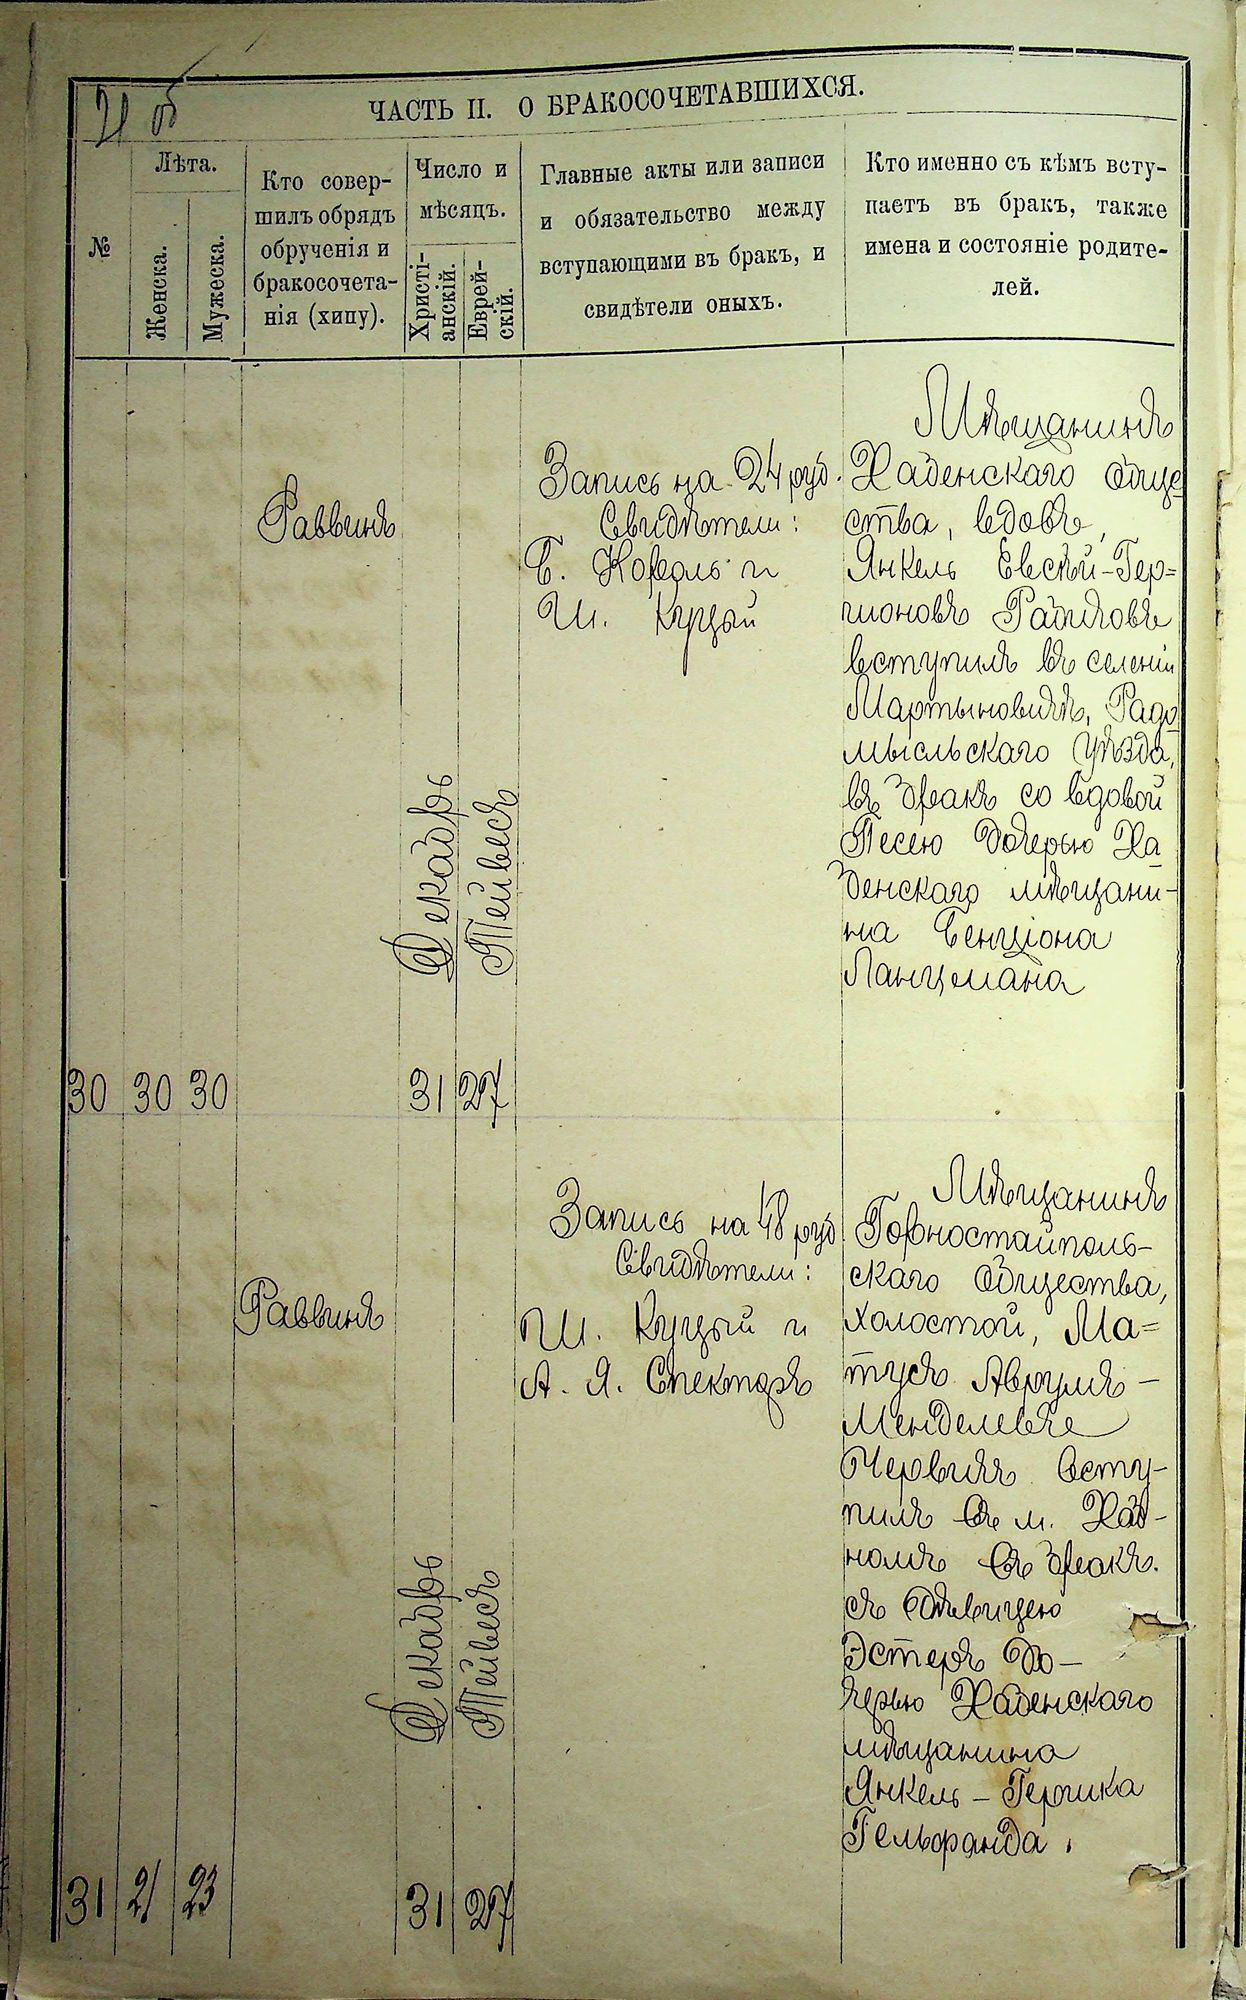 21 об
ЧАСТЬ II. О БРАКОСОЧЕТАВШИХСЯ.
№
Лѣта.
Женска.
Мужеска.
Кто совер-
шилъ обрядъ
обрученія и
бракосочета-
нія (хипу).
Число и
мѣсяцъ.
Христі-
анскій.
Еврей-
скій.
Главные акты или записи
и обязательство между
вступающими въ бракъ, и
свидѣтели оныхъ.
Кто именно съ кѣмъ всту-
паетъ въ бракъ, также
имена и состояніе родите-
лей.
30
30
30
Раввинъ
Декабрь
31
Тейвесъ
27
Запись на 24 руб.
Свидѣтели:
Б. Король и
Ш. Куцый
Мѣщанинъ
Хабенскаго обще
ства, вдовъ,
Янкель Евсѣй-Гер=
шоновъ
вступилъ въ селеніи
Мартыновичъ, Радо
мысльскаго уѣзда,
въ бракъ со вдовой
Песею дочерью Ха
бенскаго мѣщани-
на Бенціона
Ланцмана
31
21
23
Раввинъ
Декабрь
31
Тейвесъ
27
Запись на 48 руб
Свидѣтели:
Ш. Куцый и
А. Я. Спекторъ
Мѣщанинъ
Горностайполь-
скаго общества,
холостой, Ма=
тусъ Аврумъ-
Менделевъ
Червичъ всту-
пилъ въ м. Хаб-
номъ въ бракъ.
съ дѣвицею
Эстеръ до-
черью Хабенскаго
мѣщанина
Янкель-Гершка
Гельфанда.